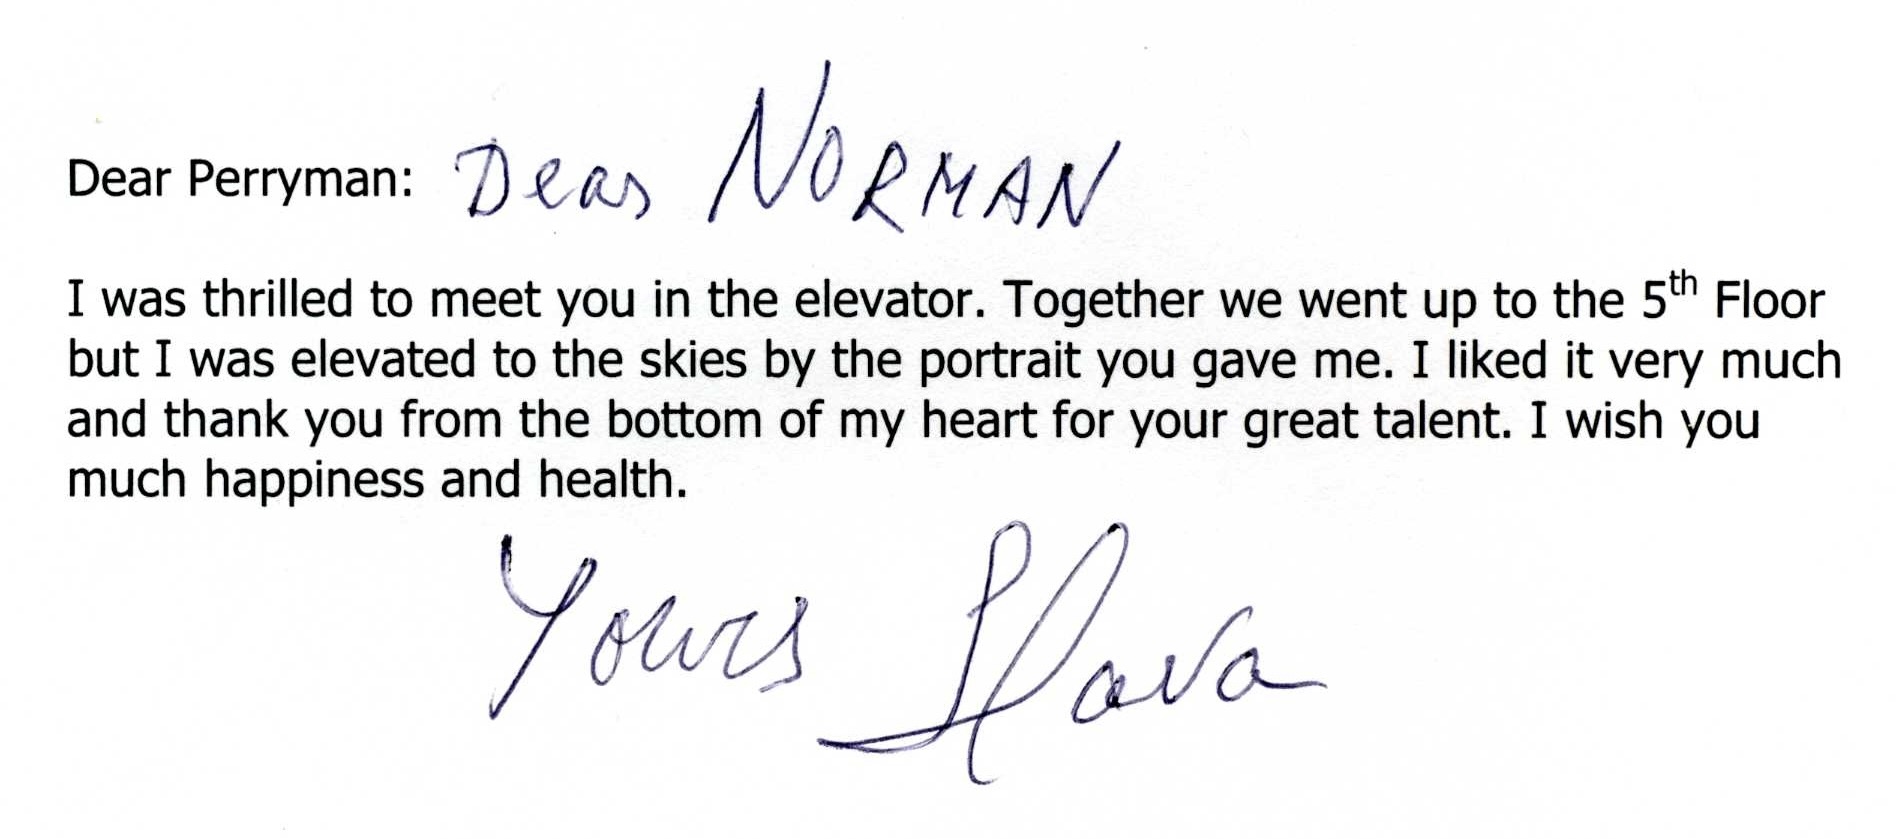 Dear Perryman: Dear NORMAN
I was thrilled to meet you in the elevator. Together we went up to the 5th Floor
but I was elevated to the skies by the portrait you gave me. I liked it very much
and thank you from the bottom of my heart for your great talent. I wish you
much happiness and health.
Yours Slava